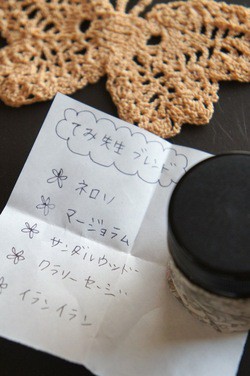 てみ先生 ブレンド
ネロリ
マージョラム
サンダルウッド
クラリーセージ
イランイラン